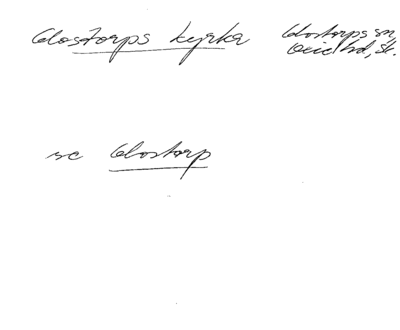 Glostorps kyrka
Glostorps sn,
Oxie hd, Sk.
se Glostorp